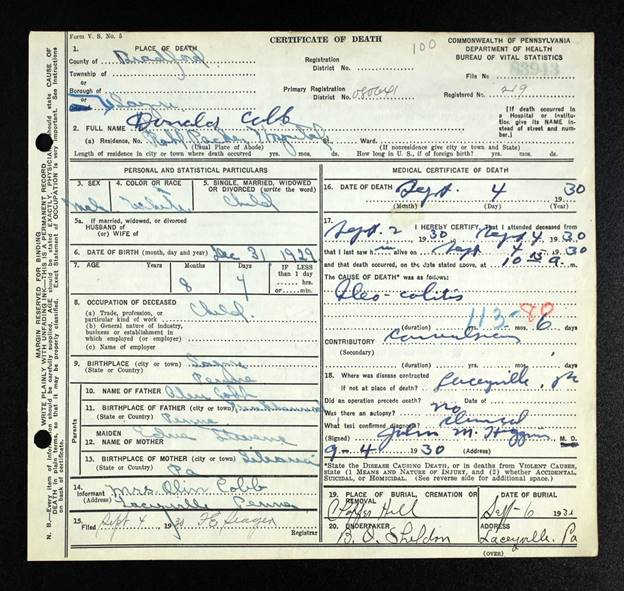 Form V. S. No. 5
CERTIFICATE OF DEATH
100
COMMONWEALTH OF PENNSYLVANIA
DEPARTMENT OF HEALTH
BUREAU OF VITAL STATISTICS
1. PLACE OF DEATH
County of Bradford
Township of
Borough of
Sayre
Registration District No.
Primary Registration District No.
File No. 83943
Registered No. 219
[If death occurred in a Hospital or Institution give its NAME instead of street and number.]
2. FULL NAME Donald Cobb
(a) Residence, No. Robt Packer Hospital Ward.
(Usual Place of Abode) (If nonresidence give city or town and State)
Length of residence in city or town where death occurred yrs. mos. ds. How long in U. S., if of foreign birth? yrs. mos. ds.
PERSONAL AND STATISTICAL PARTICULARS
3. SEX
male
4. COLOR OR RACE
White
5. SINGLE, MARRIED, WIDOWED OR DIVORCED (write the word)
Child
5a. If married, widowed, or divorced
HUSBAND of
(or) WIFE of
6. DATE OF BIRTH (month, day and year) Dec 31 1929
7. AGE YEARS MONTHS DAYS If LESS than 1 day, hrs. or min.
8 4
8. OCCUPATION OF DECEASED
(a) Trade, profession, or particular kind of work Child
(b) General nature of industry, business or establishment in which employed (or employer)
(c) Name of employer
9. BIRTHPLACE (city or town) Sayre
(State or Country) Penna
Parents
10. NAME OF FATHER Olin Cobb
11. BIRTHPLACE OF FATHER (city or town)
(State or Country) Penna
12. MAIDEN NAME OF MOTHER Edna
13. BIRTHPLACE OF MOTHER (city or town)
(State or Country) Pa
14. Informant Mrs. Olin Cobb
(Address) Laceyville Penna
15. Filed Sept 4 1930
Registrar
MEDICAL CERTIFICATE OF DEATH
16. DATE OF DEATH Sept. 4 1930
(Month) (Day) (Year)
17. I HEREBY CERTIFY, That I attended deceased from
Sept. 2 1930 Sept 4 1930
that I last saw him Sept 4 1930
and that death occurred, on the date stated above, at 10 15 a m.
The CAUSE OF DEATH* was as follows:
Ileo-colitis
113-80
(duration) yrs. mos. 6 days
CONTRIBUTORY Convulsions
(Secondary)
(duration) yrs. mos. days
18. Where was disease contracted
if not at place of death? Laceyville, Pa
Did an operation precede death?
Was there an autopsy? No
What test confirmed diagnosis? Clinical
(Signed) John M. Higgins M. D.
9-4 1930 (Address)
*State the DISEASE CAUSING DEATH, or in deaths from VIOLENT CAUSES, state (1) MEANS AND NATURE OF INJURY, and (2) whether ACCIDENTAL, SUICIDAL, or HOMICIDAL. (See reverse side for additional space.)
19. PLACE OF BURIAL, CREMATION OR REMOVAL
Hill
DATE OF BURIAL
Sept-6 1930
20. UNDERTAKER
B. O. Sheldon
ADDRESS
Laceyville, Pa
(OVER)
MARGIN RESERVED FOR BINDING
WRITE PLAINLY WITH UNFADING INK—THIS IS A PERMANENT RECORD
N. B.—Every item of information should be carefully supplied. AGE should be stated EXACTLY. PHYSICIANS should state CAUSE OF DEATH in plain terms, so that it may be properly classified. Exact Statement of OCCUPATION is very important. See instructions on back of certificate.